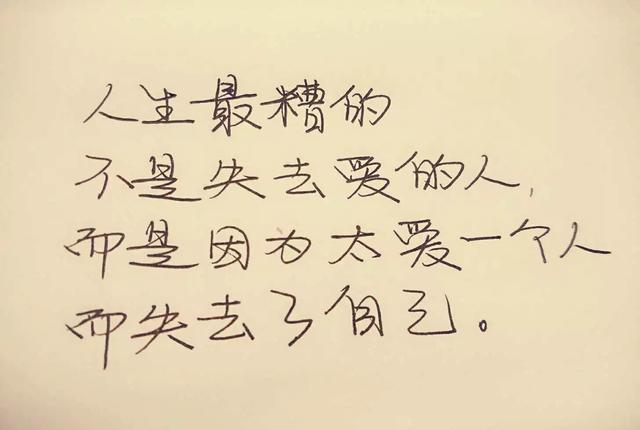 人生最糟的
不是失去爱的人,
而是因为太爱一个人
而失去了自己。